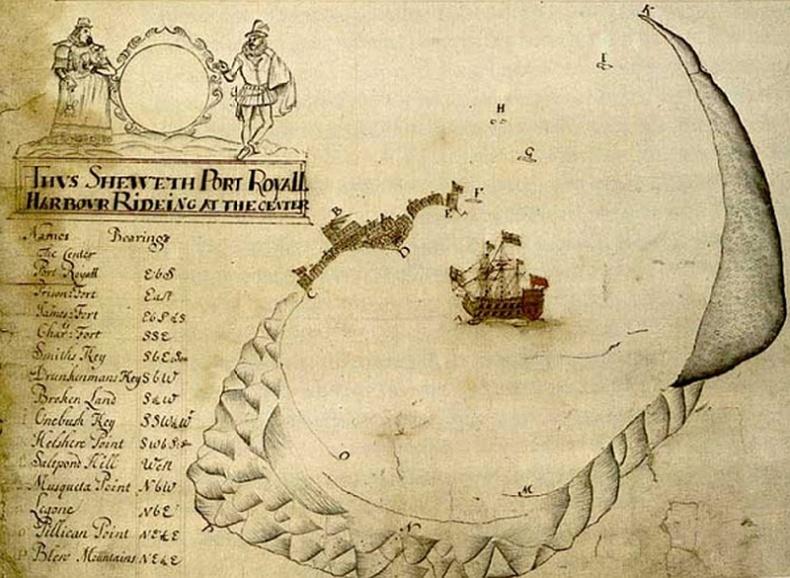 THVS SHEWETH PORT ROYALL
HARBOUR RIDEING AT THE CENTER
Names Bearings
The Center
Port Royall EbS
Prison:Fort East
James:Fort
Char:s Fort SSE
Smiths Key
Drunkenmans Key SbW
Broken Land
Onebush Key
Helshere Point
Saltpond Hill West
Musqueta Point NbW
Legone NbE
Pillican Point
Blew Mountains
K
I
H
G
F
E
B
D
C
O
M
N
P